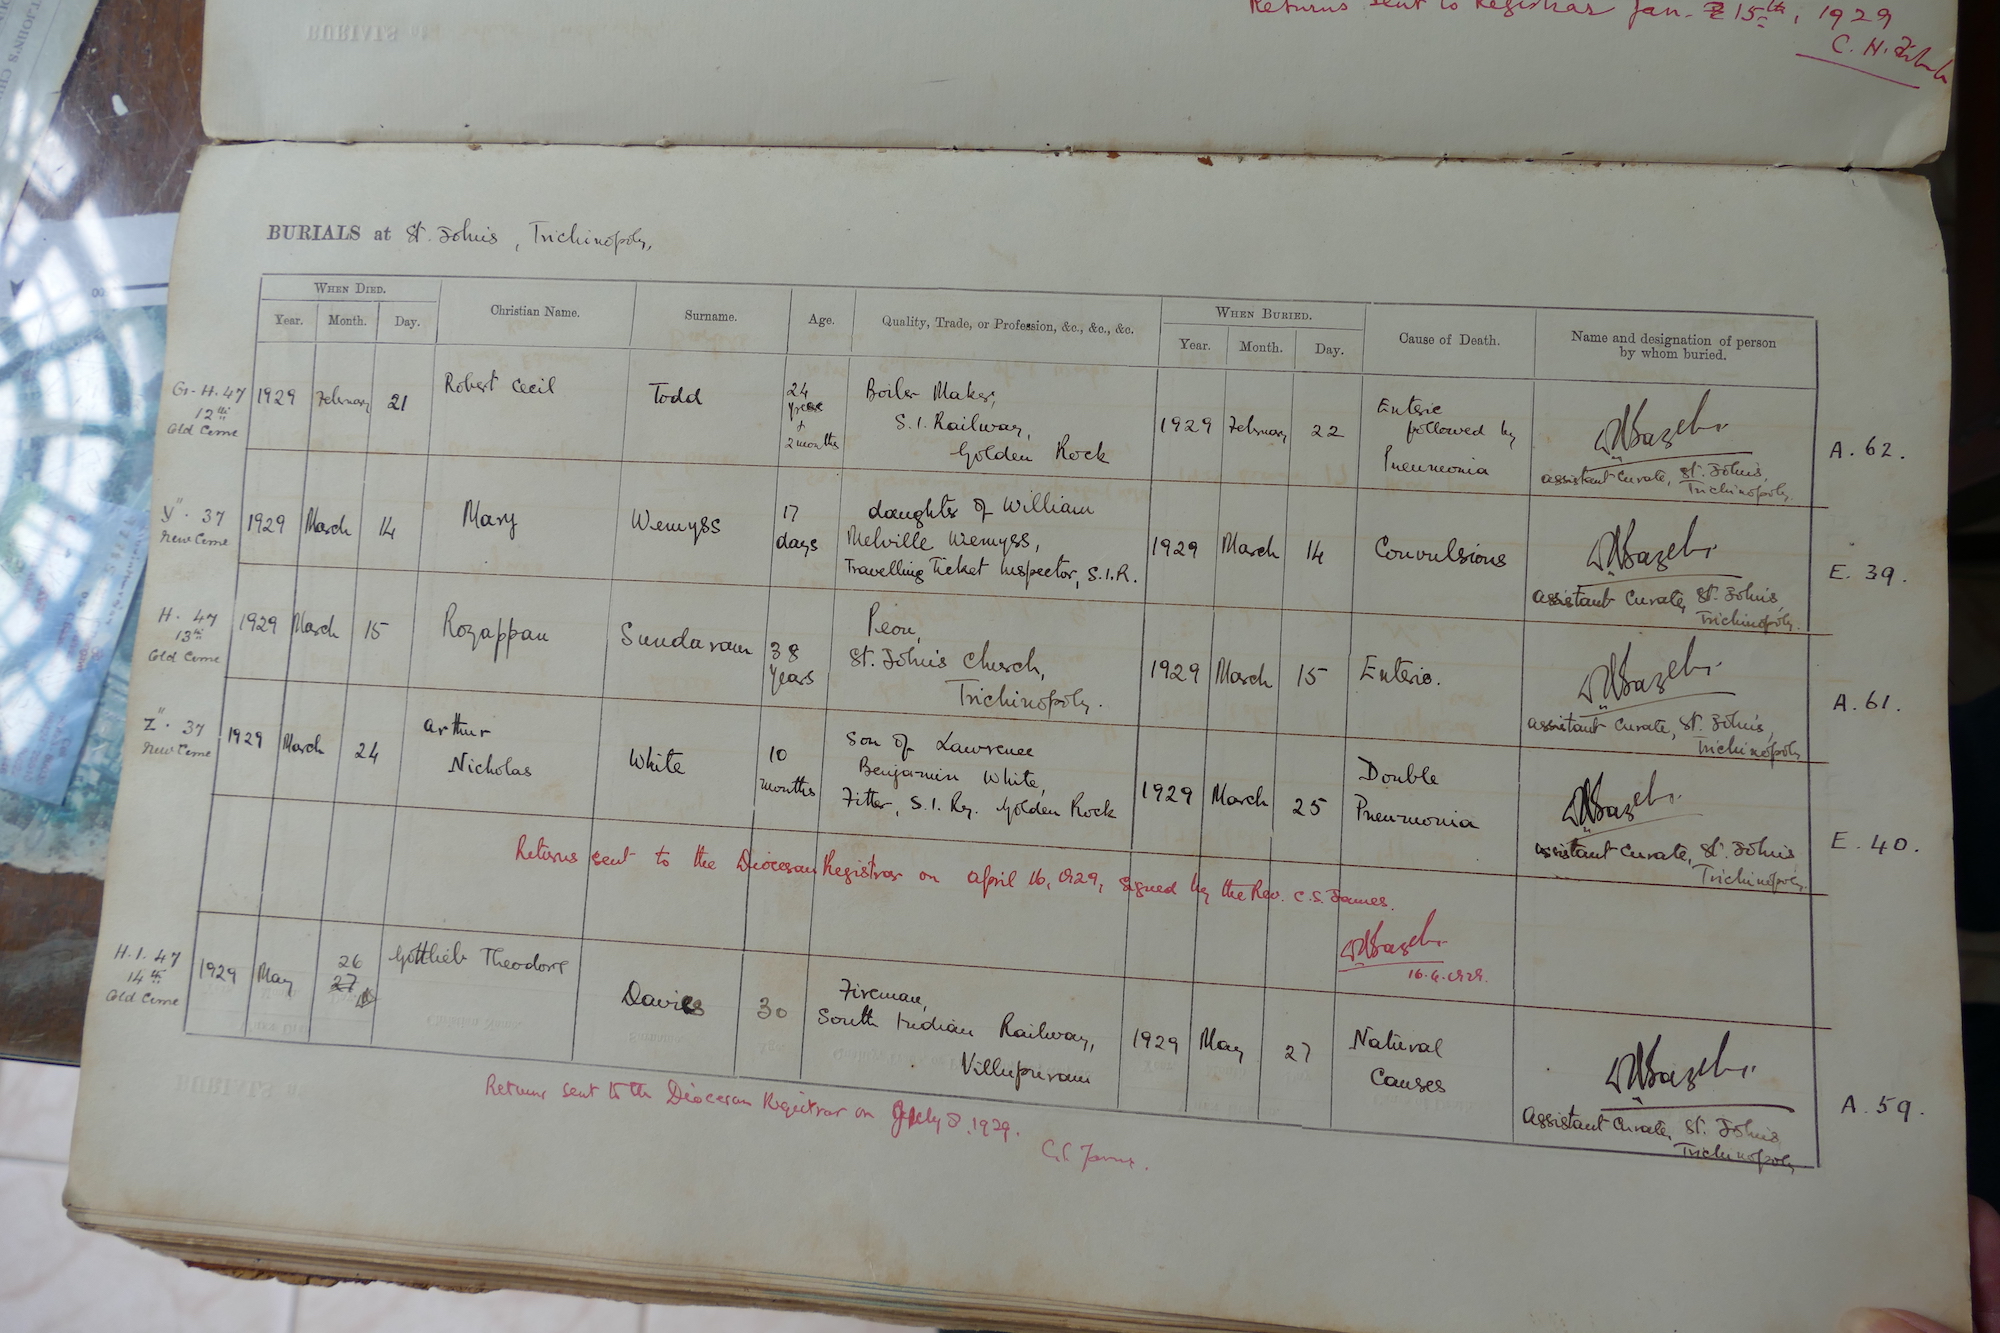 Returns sent to Registrar Jan. 15th, 1929
C. H.
BURIALS at St. John's, Trichinopoly,
WHEN DIED.
Year. Month. Day.
Christian Name.
Surname.
Age.
Quality, Trade, or Profession, &c., &c., &c.
WHEN BURIED.
Year. Month. Day.
Cause of Death.
Name and designation of person
by whom buried.
G-H. 47
12th
Old Ceme
1929 February 21
Robert Cecil
Todd
24
years
+
2 months
Boiler Maker,
S. I. Railway,
Golden Rock
1929 February 22
Enteric
followed by
Pneumonia
assistant Curate, St. John's,
Trichinopoly.
A. 62.
Y". 37
New Ceme
1929 March 14
Mary
Wemyss
17
days
daughter of William
Melville Wemyss,
Travelling Ticket Inspector, S.I.R.
1929 March 14
Convulsions
assistant Curate, St. John's,
Trichinopoly.
E. 39.
H. 47
13th
Old Ceme
1929 March 15
Rozappan
Sundaram
38
Years
Peon,
St. John's Church,
Trichinopoly.
1929 March 15
Enteric.
assistant Curate, St. John's,
Trichinopoly
A. 61.
Z". 37
New Ceme
1929 March 24
Arthur
Nicholas
White
10
months
Son of Lawrence
Benjamin White,
Fitter, S. I. Ry. Golden Rock
1929 March 25
Double
Pneumonia
assistant Curate, St. John's
Trichinopoly.
E. 40.
Returns sent to the Diocesan Registrar on April 16, 1929, signed by the Rev. C. S. James.
16.4.1929.
H. I. 47
14th
Old Ceme
1929 May 26
27
Gottlieb Theodore
Davies
30
Fireman,
South Indian Railway,
Villupuram
1929 May 27
Natural
Causes
Assistant Curate, St. John's
Trichinopoly
A. 59.
Returns sent to the Diocesan Registrar on July 8, 1929.
C. S. James.